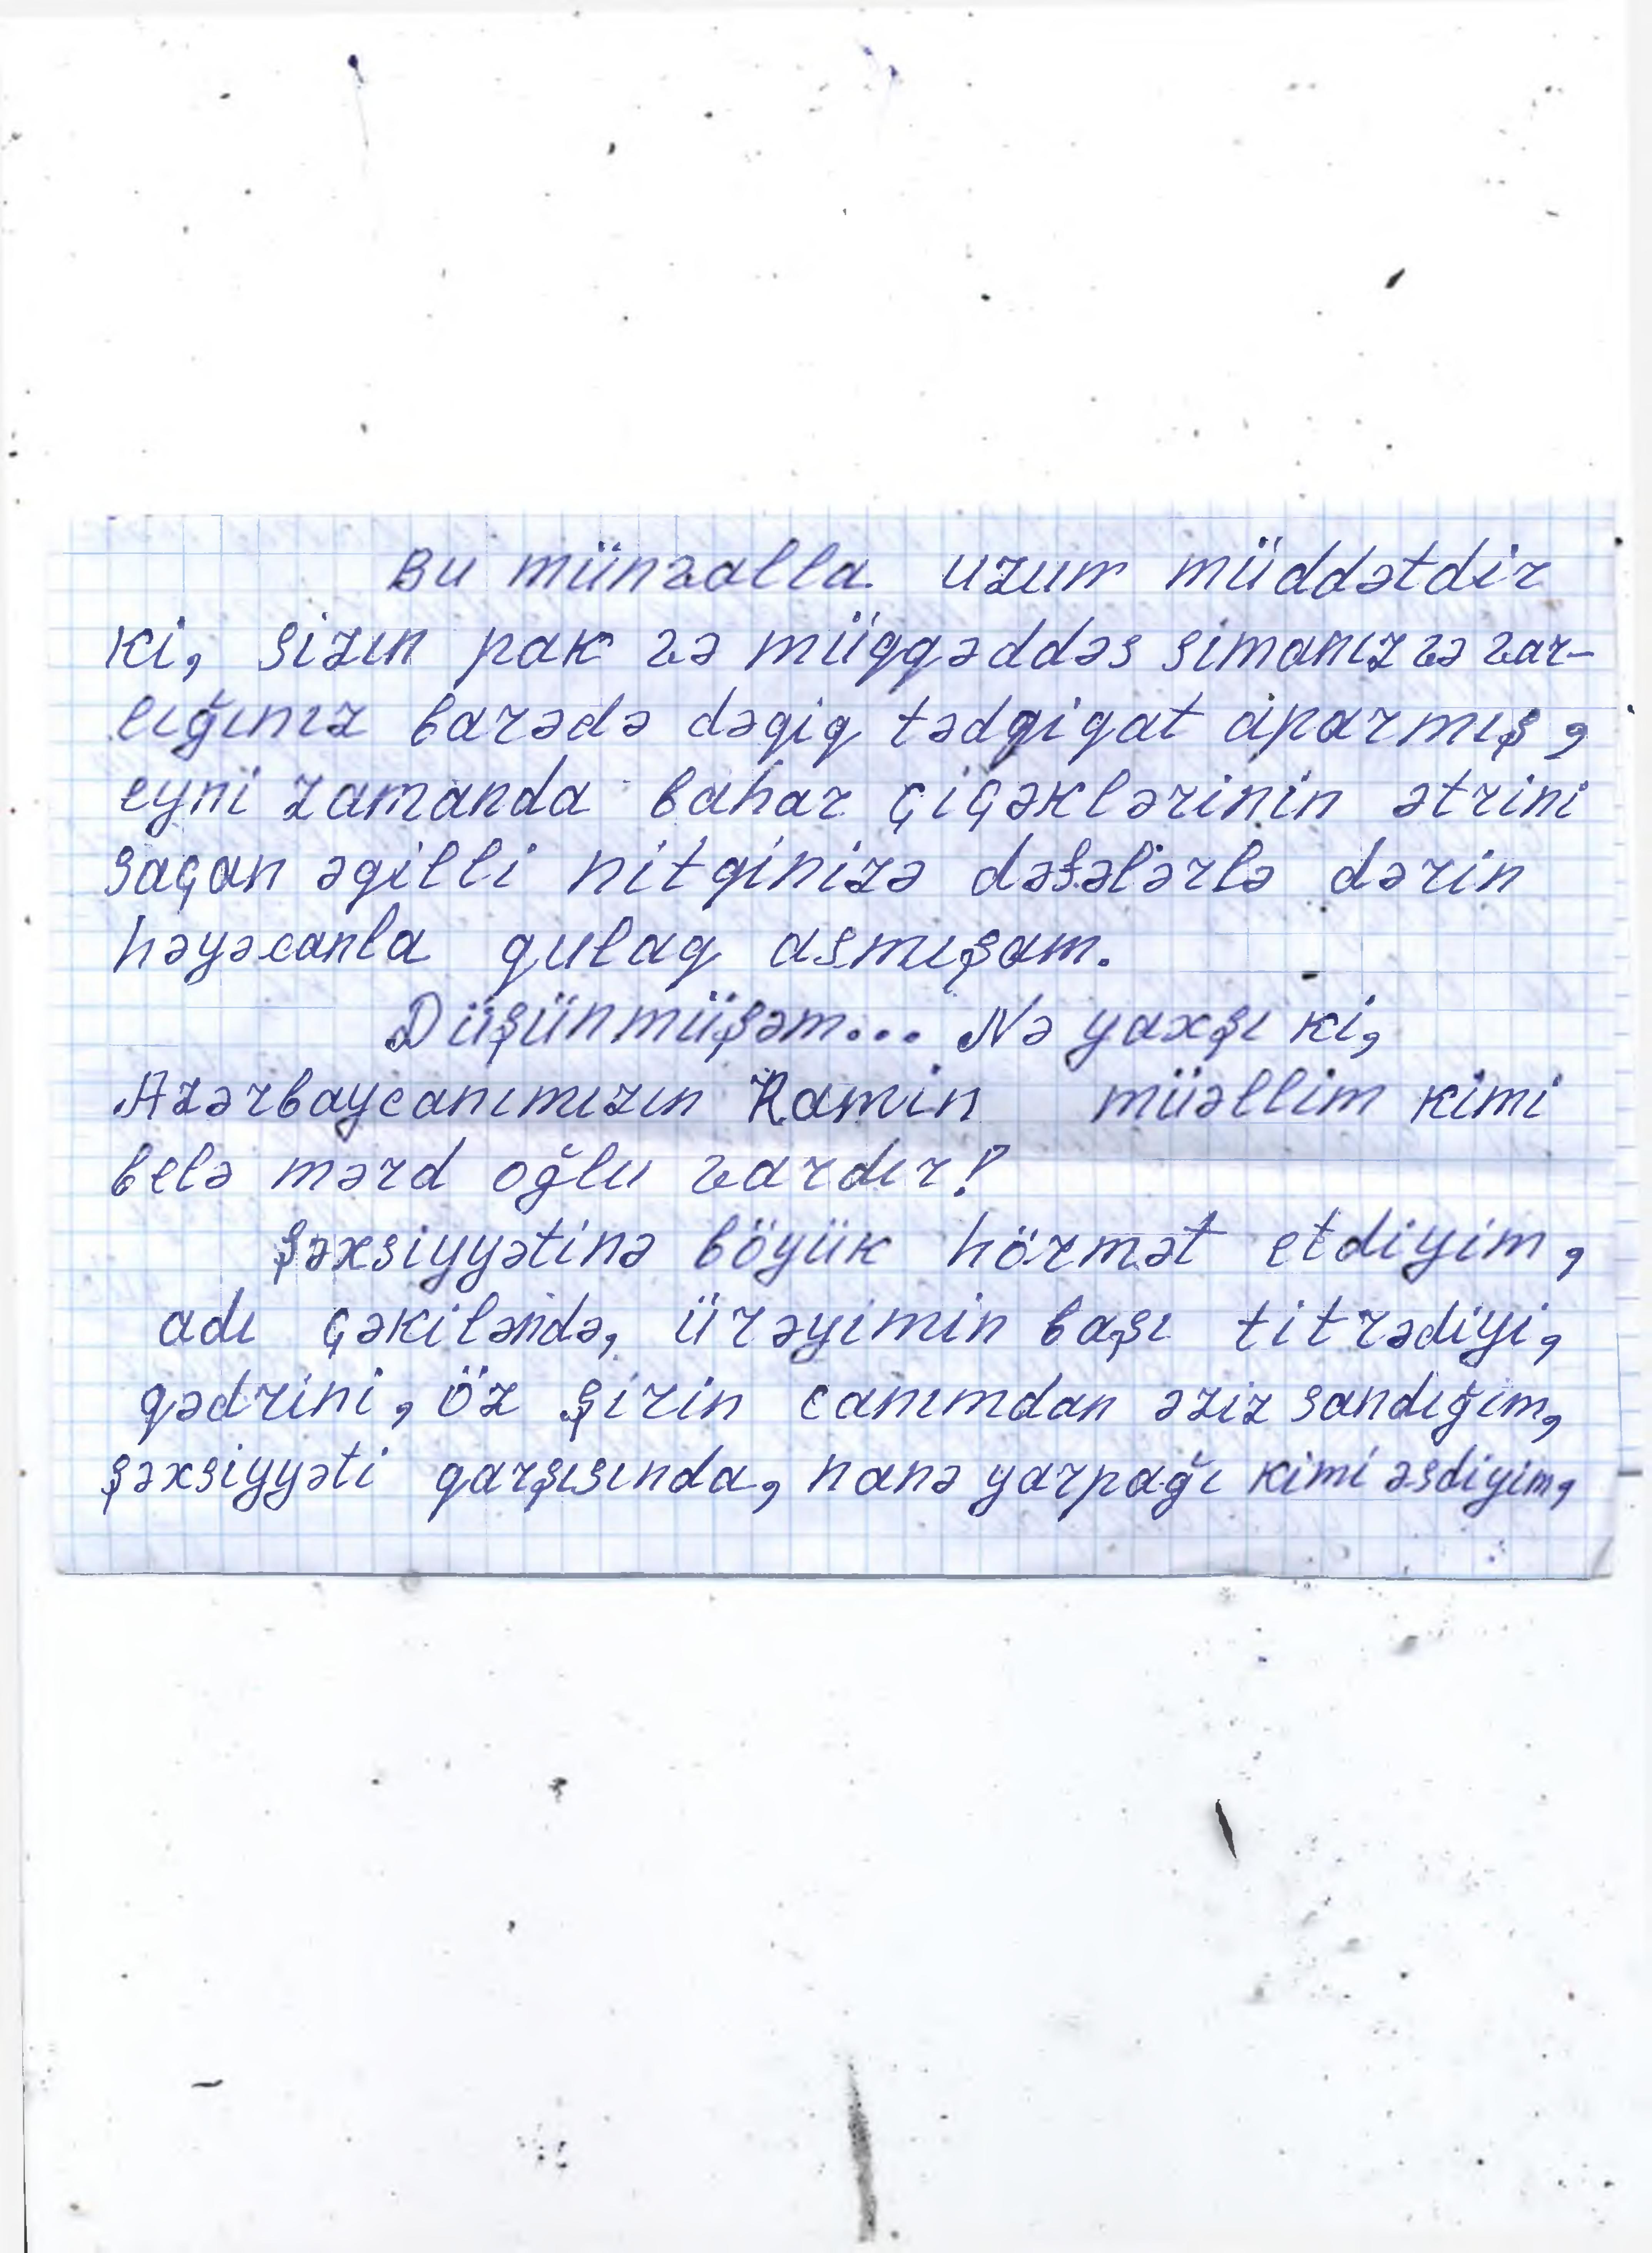 Bu münvalla uzum müddətdir
ki, sizin pak və müqqəddəs simanız və var-
lığınız barədə dəqiq tədqiqat aparmış,
eyni zamanda bahar çiçəklərinin ətrini
saçan əqilli nitqinizə dəfələrlə dərin
həyəcanla qulaq asmışam.
Düşünmüşəm... Nə yaxşı ki,
Azərbaycanımızın Ramin müəllim kimi
belə mərd oğlu vardır!
Şəxsiyyətinə böyük hörmət etdiyim,
adı çəkiləndə, ürəyimin başı titrədiyi,
qədrini, öz şirin canımdan əziz sandığım,
şəxsiyyəti qarşısında, nanə yarpağı kimi əsdiyim,